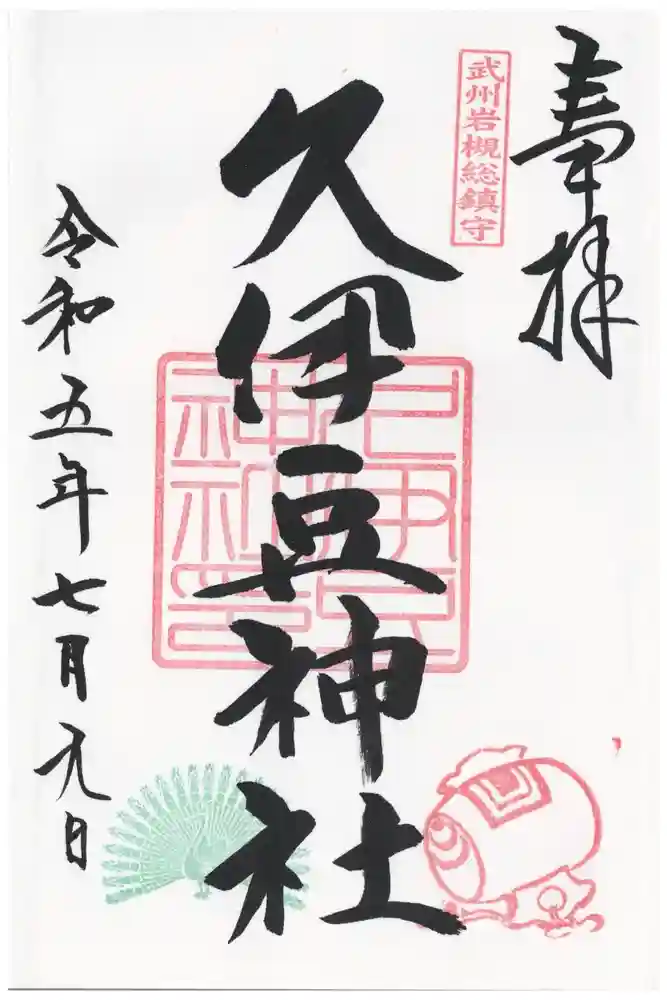 奉拝
武州岩槻総鎮守
久伊豆神社
令和五年七月九日